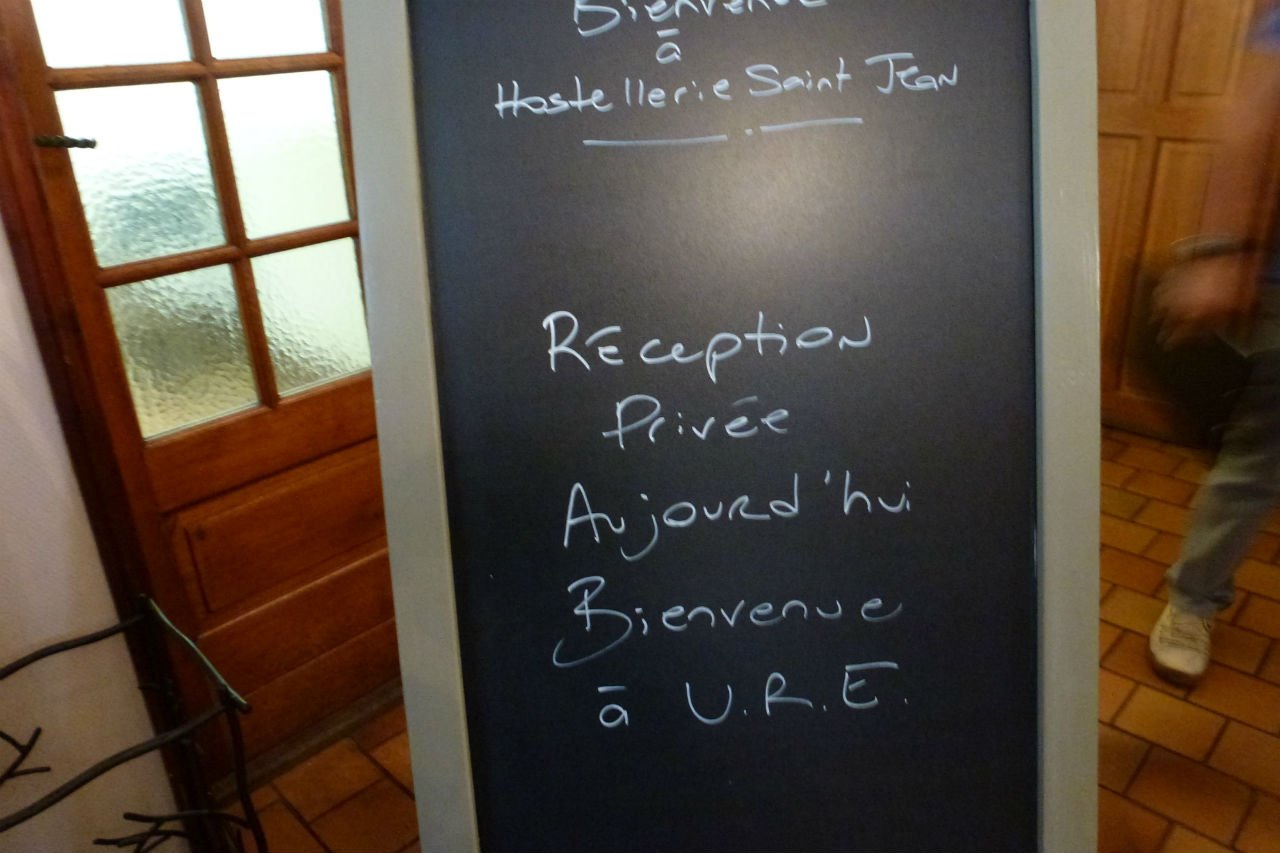 Bienvenue
à
Hostellerie Saint Jean
Réception
Privée
Aujourd'hui
Bienvenue
à U.R.E.